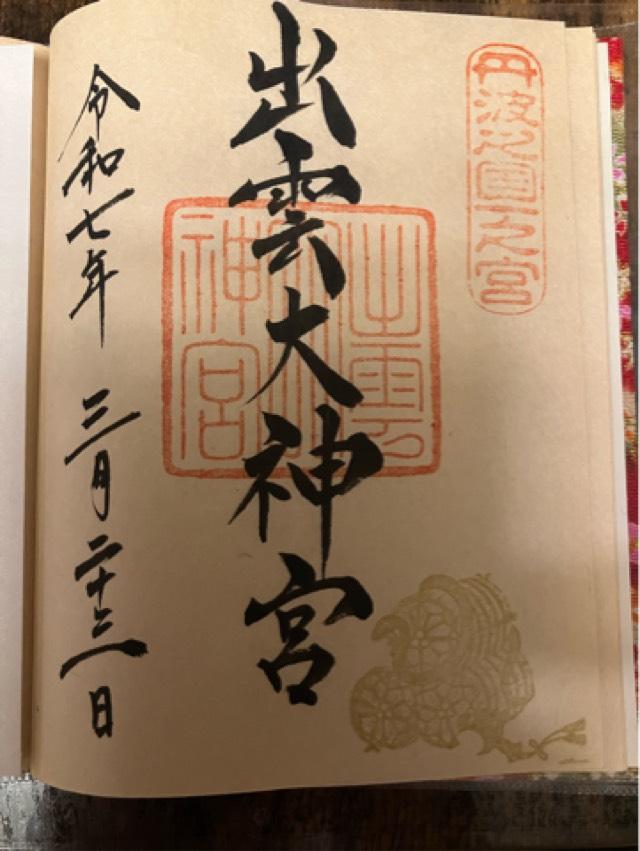 丹波之國一之宮
出雲大神宮
出雲大神宮
令和七年 三月二十三日